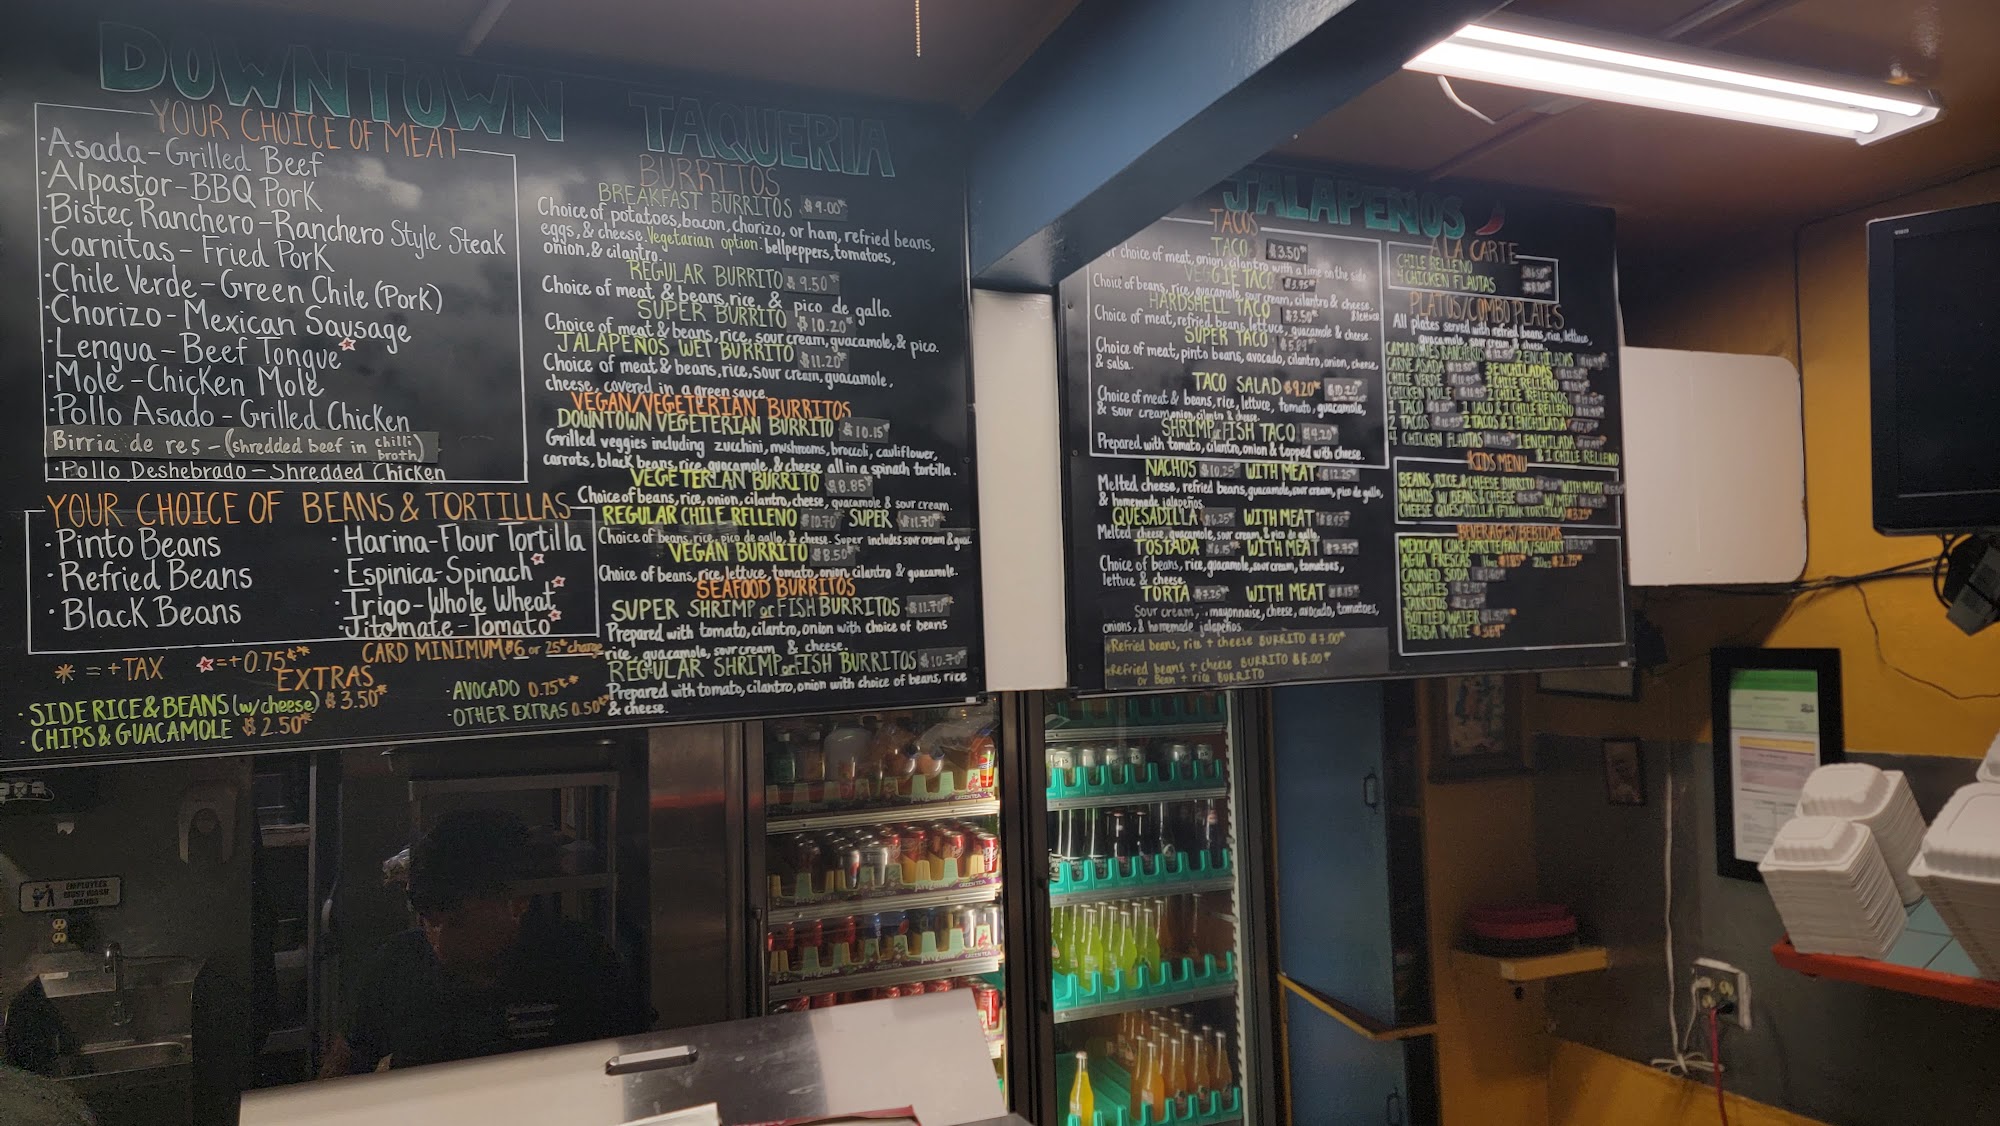 DOWNTOWN TAQUERIA
YOUR CHOICE OF MEAT
·Asada-Grilled Beef
·Alpastor-BBQ Pork
·Bistec Ranchero-Ranchero Style Steak
·Carnitas-Fried Pork
·Chile Verde-Green Chile (Pork)
·Chorizo-Mexican Sausage
·Lengua-Beef Tongue
·Mole-Chicken Mole
·Pollo Asado-Grilled Chicken
Birria de res-(shredded beef in chilli broth)
·Pollo Deshebrado-Shredded Chicken
YOUR CHOICE OF BEANS & TORTILLAS
·Pinto Beans
·Refried Beans
·Black Beans
·Harina-Flour Tortilla
·Espinica-Spinach
·Trigo-Whole Wheat
·Jitomate-Tomato
* = +TAX
=+0.75
CARD MINIMUM $6 or 25¢ charge
EXTRAS
·SIDE RICE & BEANS (w/cheese) $3.50*
·CHIPS & GUACAMOLE $2.50*
·AVOCADO 0.75¢*
·OTHER EXTRAS 0.50¢*
BURRITOS
BREAKFAST BURRITOS $9.00*
Choice of potatoes, bacon, chorizo, or ham, refried beans,
eggs, & cheese. Vegetarian option: bellpeppers, tomatoes,
onion, & cilantro.
REGULAR BURRITO $9.50*
Choice of meat & beans, rice, & pico de gallo.
SUPER BURRITO $10.20*
Choice of meat & beans, rice, sour cream, guacamole, & pico.
JALAPEÑOS WET BURRITO $11.20*
Choice of meat & beans, rice, sour cream, guacamole,
cheese, covered in a green sauce.
VEGAN/VEGETERIAN BURRITOS
DOWNTOWN VEGETERIAN BURRITO $10.15*
Grilled veggies including zucchini, mushrooms, broccoli, cauliflower,
carrots, black beans, rice, guacamole, & cheese all in a spinach tortilla.
VEGETERIAN BURRITO $8.85*
Choice of beans, rice, onion, cilantro, cheese, guacamole & sour cream.
REGULAR CHILE RELLENO $10.70 SUPER $11.70*
Choice of beans, rice, pico de gallo, & cheese. Super includes sour cream & guac.
VEGAN BURRITO $8.50*
Choice of beans, rice, lettuce, tomato, onion, cilantro & guacamole.
SEAFOOD BURRITOS
SUPER SHRIMP or FISH BURRITOS $11.70*
Prepared with tomato, cilantro, onion with choice of beans
rice, guacamole, sour cream & cheese.
REGULAR SHRIMP or FISH BURRITOS $10.70*
Prepared with tomato, cilantro, onion with choice of beans, rice
& cheese.
JALAPEÑOS
TACOS
TACO $3.50*
choice of meat, onion, cilantro with a lime on the side
VEGGIE TACO $3.95*
Choice of beans, rice, guacamole, sour cream, cilantro & cheese.
& lettuce
HARDSHELL TACO $3.50*
Choice of meat, refried beans, lettuce, guacamole & cheese.
SUPER TACO
Choice of meat, pinto beans, avocado, cilantro, onion, cheese,
& salsa.
TACO SALAD $9.20* $10.20
Choice of meat & beans, rice, lettuce, tomato, guacamole,
& sour cream, onion, cilantro & cheese.
SHRIMP or FISH TACO $4.20*
Prepared with tomato, cilantro, onion & topped with cheese.
NACHOS $10.25* WITH MEAT $12.25*
Melted cheese, refried beans, guacamole, sour cream, pico de gallo,
& homemade jalapeños.
QUESADILLA $6.25* WITH MEAT
Melted cheese, guacamole, sour cream, & pico de gallo.
TOSTADA WITH MEAT
Choice of beans, rice, guacamole, sour cream, tomatoes,
lettuce & cheese.
TORTA WITH MEAT
Sour cream, mayonnaise, cheese, avocado, tomatoes,
onions, & homemade jalapeños.
*Refried beans, rice + cheese BURRITO $7.00*
*Refried beans + cheese BURRITO $6.00*
or Bean + rice BURRITO
A LA CARTE
CHILE RELLENO
4 CHICKEN FLAUTAS
PLATOS/COMBO PLATES
All plates served with refried beans, rice, lettuce,
guacamole, sour cream, & cheese.
CAMARONES RANCHEROS
CARNE ASADA
CHILE VERDE
CHICKEN MOLE
1 TACO
2 TACOS
4 CHICKEN FLAUTAS
2 ENCHILADAS
3 ENCHILADAS
1 CHILE RELLENO
2 CHILE RELLENOS
1 TACO & 1 CHILE RELLENO
2 TACOS & 1 ENCHILADA
1 ENCHILADA
& 1 CHILE RELLENO
KIDS MENU
BEANS, RICE, & CHEESE BURRITO WITH MEAT
NACHOS W/ BEANS & CHEESE W/ MEAT
CHEESE QUESADILLA (FLOUR TORTILLA)
BEVERAGES/BEBIDAS
MEXICAN COKE/SPRITE/FANTA/SQUIRT
AGUA FRESCAS
CANNED SODA
SNAPPLES
JARRITOS
BOTTLED WATER
YERBA MATE
EMPLOYEES
MUST WASH
HANDS